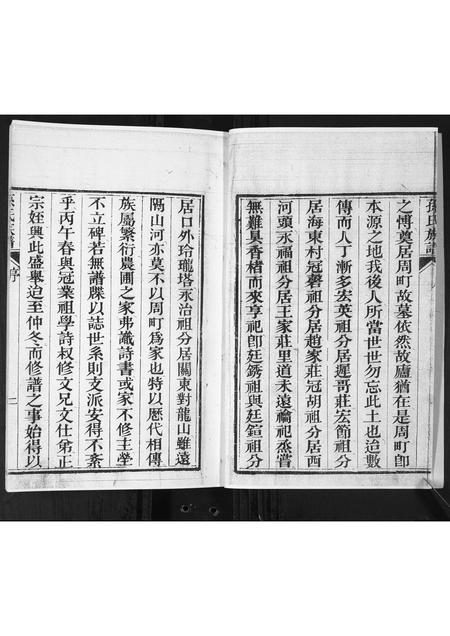 孫氏族譜
之愽奠居周町故墓依然故廬猶在是周町卽
本源之地我後人所當世世勿忘此土也迨數
傳而人丁漸多宏英祖分居遲哥莊宏節祖分
居海東村冠磬祖分居趙家莊冠胡祖分居西
河頭永福祖分居王家莊里道未遠禴祀烝嘗
無難具香楮而來享祀卽廷銹祖與廷鍹祖分
居口外玲瓏塔永治祖分居關東對龍山雖遠
隔山河亦莫不以周町爲家也特以歷代相傳
族屬繁衍農圃之家弗識詩書或家不修主塋
不立碑若無譜牒以誌世系則支派安得不紊
乎丙午春與冠業祖學詩叔修文兄文仕弟正
宗姪興此盛舉迨至仲冬而修譜之事始得以
序
二